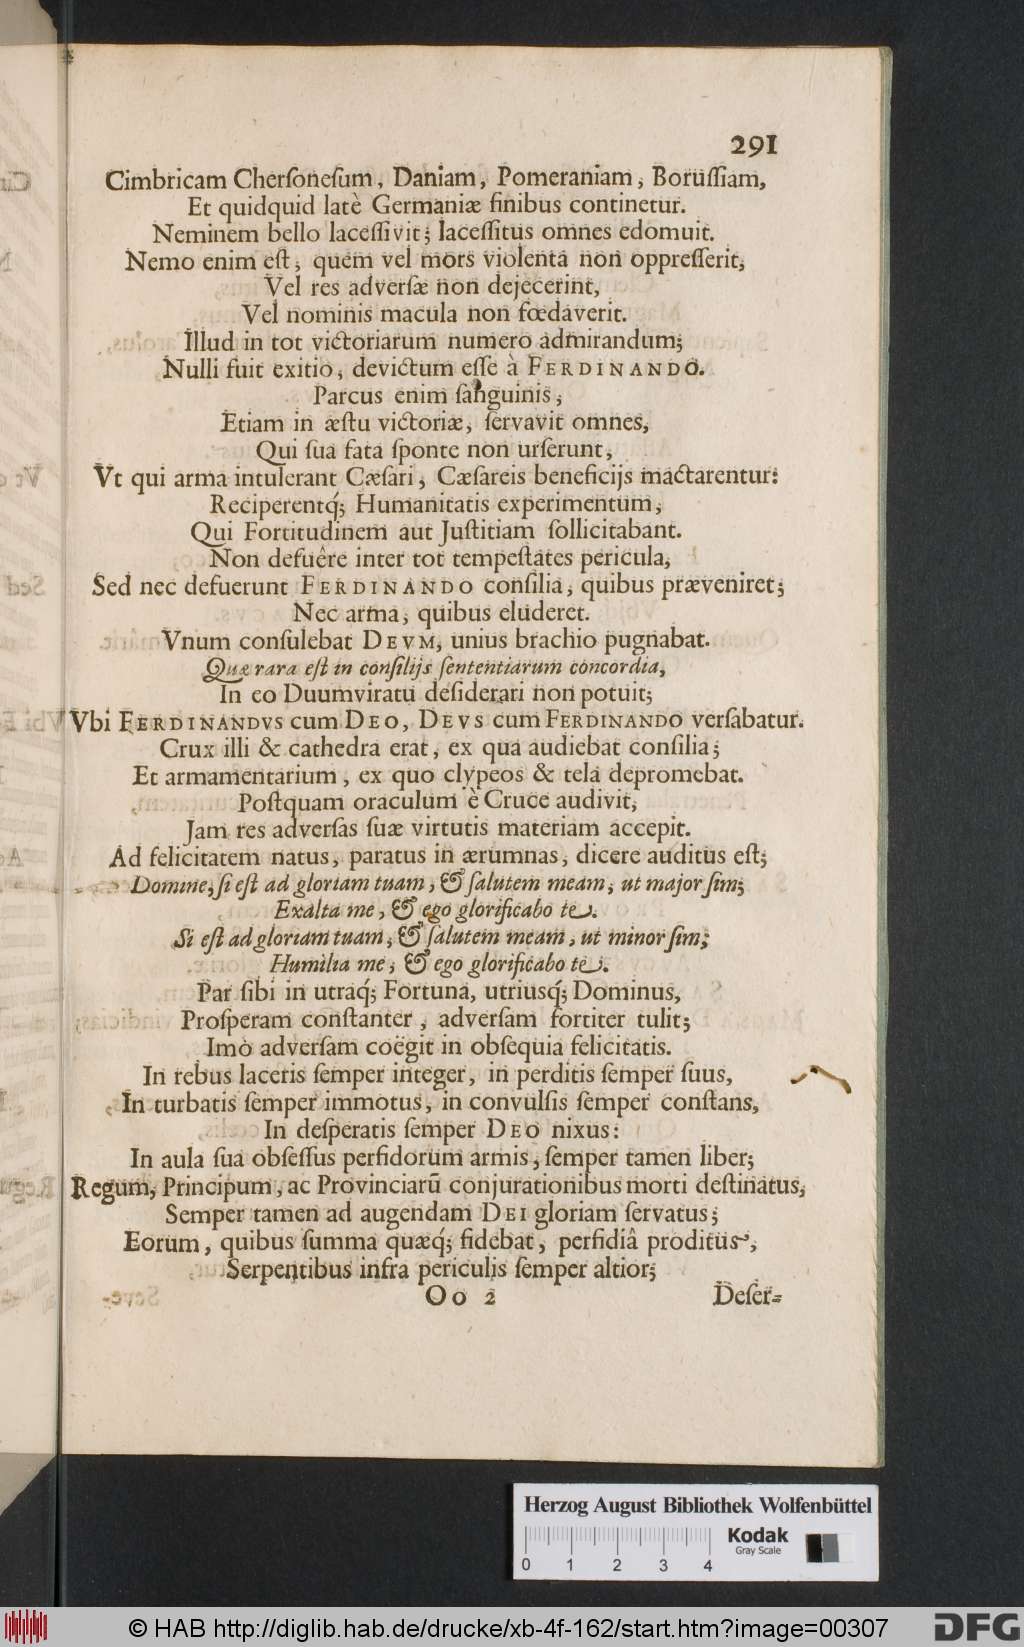 291
Cimbricam Cherſoneſum, Daniam, Pomeraniam, Boruſſiam,
Et quidquid latè Germaniæ finibus continetur.
Neminem bello laceſſivit; laceſſitus omnes edomuit.
Nemo enim eſt, quem vel mors violenta non oppreſſerit,
Vel res adverſæ non dejecerint,
Vel nominis macula non fœdaverit.
Illud in tot victoriarum numero admirandum;
Nulli fuit exitio, devictum eſſe à FERDINANDO.
Parcus enim ſanguinis,
Etiam in æſtu victoriæ, ſervavit omnes,
Qui ſua fata ſponte non urſerunt,
Vt qui arma intulerant Cæſari, Cæſareis beneficijs mactarentur:
Reciperentq́; Humanitatis experimentum,
Qui Fortitudinem aut Juſtitiam ſollicitabant.
Non defuêre inter tot tempeſtates pericula,
Sed nec defuerunt FERDINANDO conſilia, quibus præveniret;
Nec arma, quibus eluderet.
Vnum conſulebat DEVM, unius brachio pugnabat.
Quæ rara eſt in conſilijs ſententiarum concordia,
In eo Duumviratu deſiderari non potuit;
Vbi FERDINANDVS cum DEO, DEVS cum FERDINANDO verſabatur.
Crux illi & cathedra erat, ex qua audiebat conſilia;
Et armamentarium, ex quo clypeos & tela depromebat.
Poſtquam oraculum è Cruce audivit,
Jam res adverſas ſuæ virtutis materiam accepit.
Ad felicitatem natus, paratus in ærumnas, dicere auditus eſt;
Domine, ſi eſt ad gloriam tuam, & ſalutem meam, ut major ſim;
Exalta me, & ego glorificabo te.
Si eſt ad gloriam tuam, & ſalutem meam, ut minor ſim;
Humilia me, & ego glorificabo te.
Par ſibi in utraq́; Fortuna, utriusq́; Dominus,
Proſperam conſtanter, adverſam fortiter tulit;
Imò adverſam coëgit in obſequia felicitatis.
In rebus laceris ſemper integer, in perditis ſemper ſuus,
In turbatis ſemper immotus, in convulſis ſemper conſtans,
In deſperatis ſemper DEO nixus:
In aula ſua obſeſſus perfidorum armis, ſemper tamen liber;
Regum, Principum, ac Provinciarū conjurationibus morti deſtinatus,
Semper tamen ad augendam DEI gloriam ſervatus;
Eorum, quibus ſumma quæq́; fidebat, perfidiâ proditus,
Serpentibus infra periculis ſemper altior;
Oo 2 Deſer-
Herzog August Bibliothek Wolfenbüttel
Kodak
Gray Scale
0 1 2 3 4
© HAB http://diglib.hab.de/drucke/xb-4f-162/start.htm?image=00307
DFG